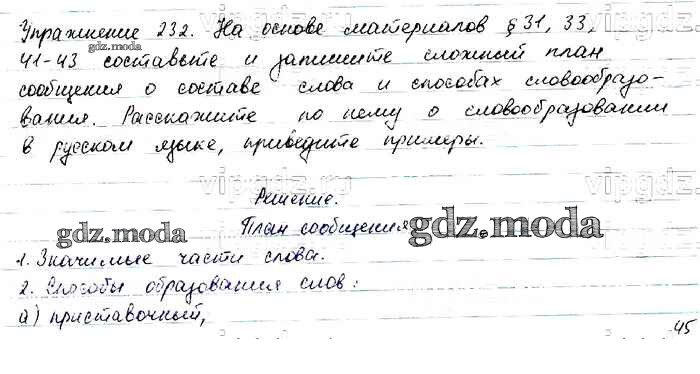 Упражнение 232. На основе материалов § 31, 33,
41-43 составьте и запишите сложный план
сообщения о составе слова и способах словообразо-
вания. Расскажите по нему о словообразовании
в русском языке, приведите примеры.
Решение.
План сообщения
1. Значимые части слова.
2. Способы образования слов:
а) приставочный,
45
gdz.moda
gdz.moda
gdz.moda
vipgdz.ru
vipgdz.ru